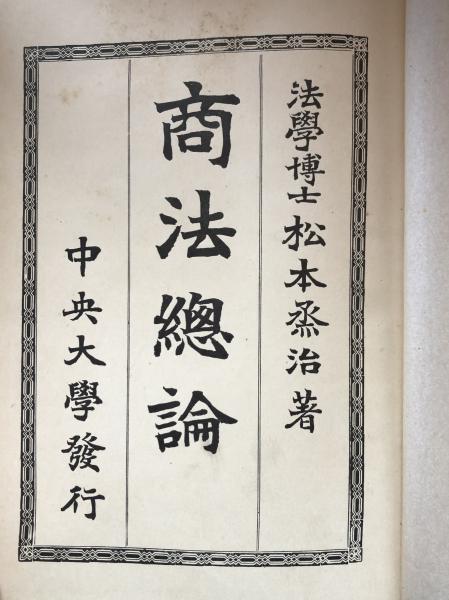 法學博士 松本烝治著
商法總論
中央大學發行